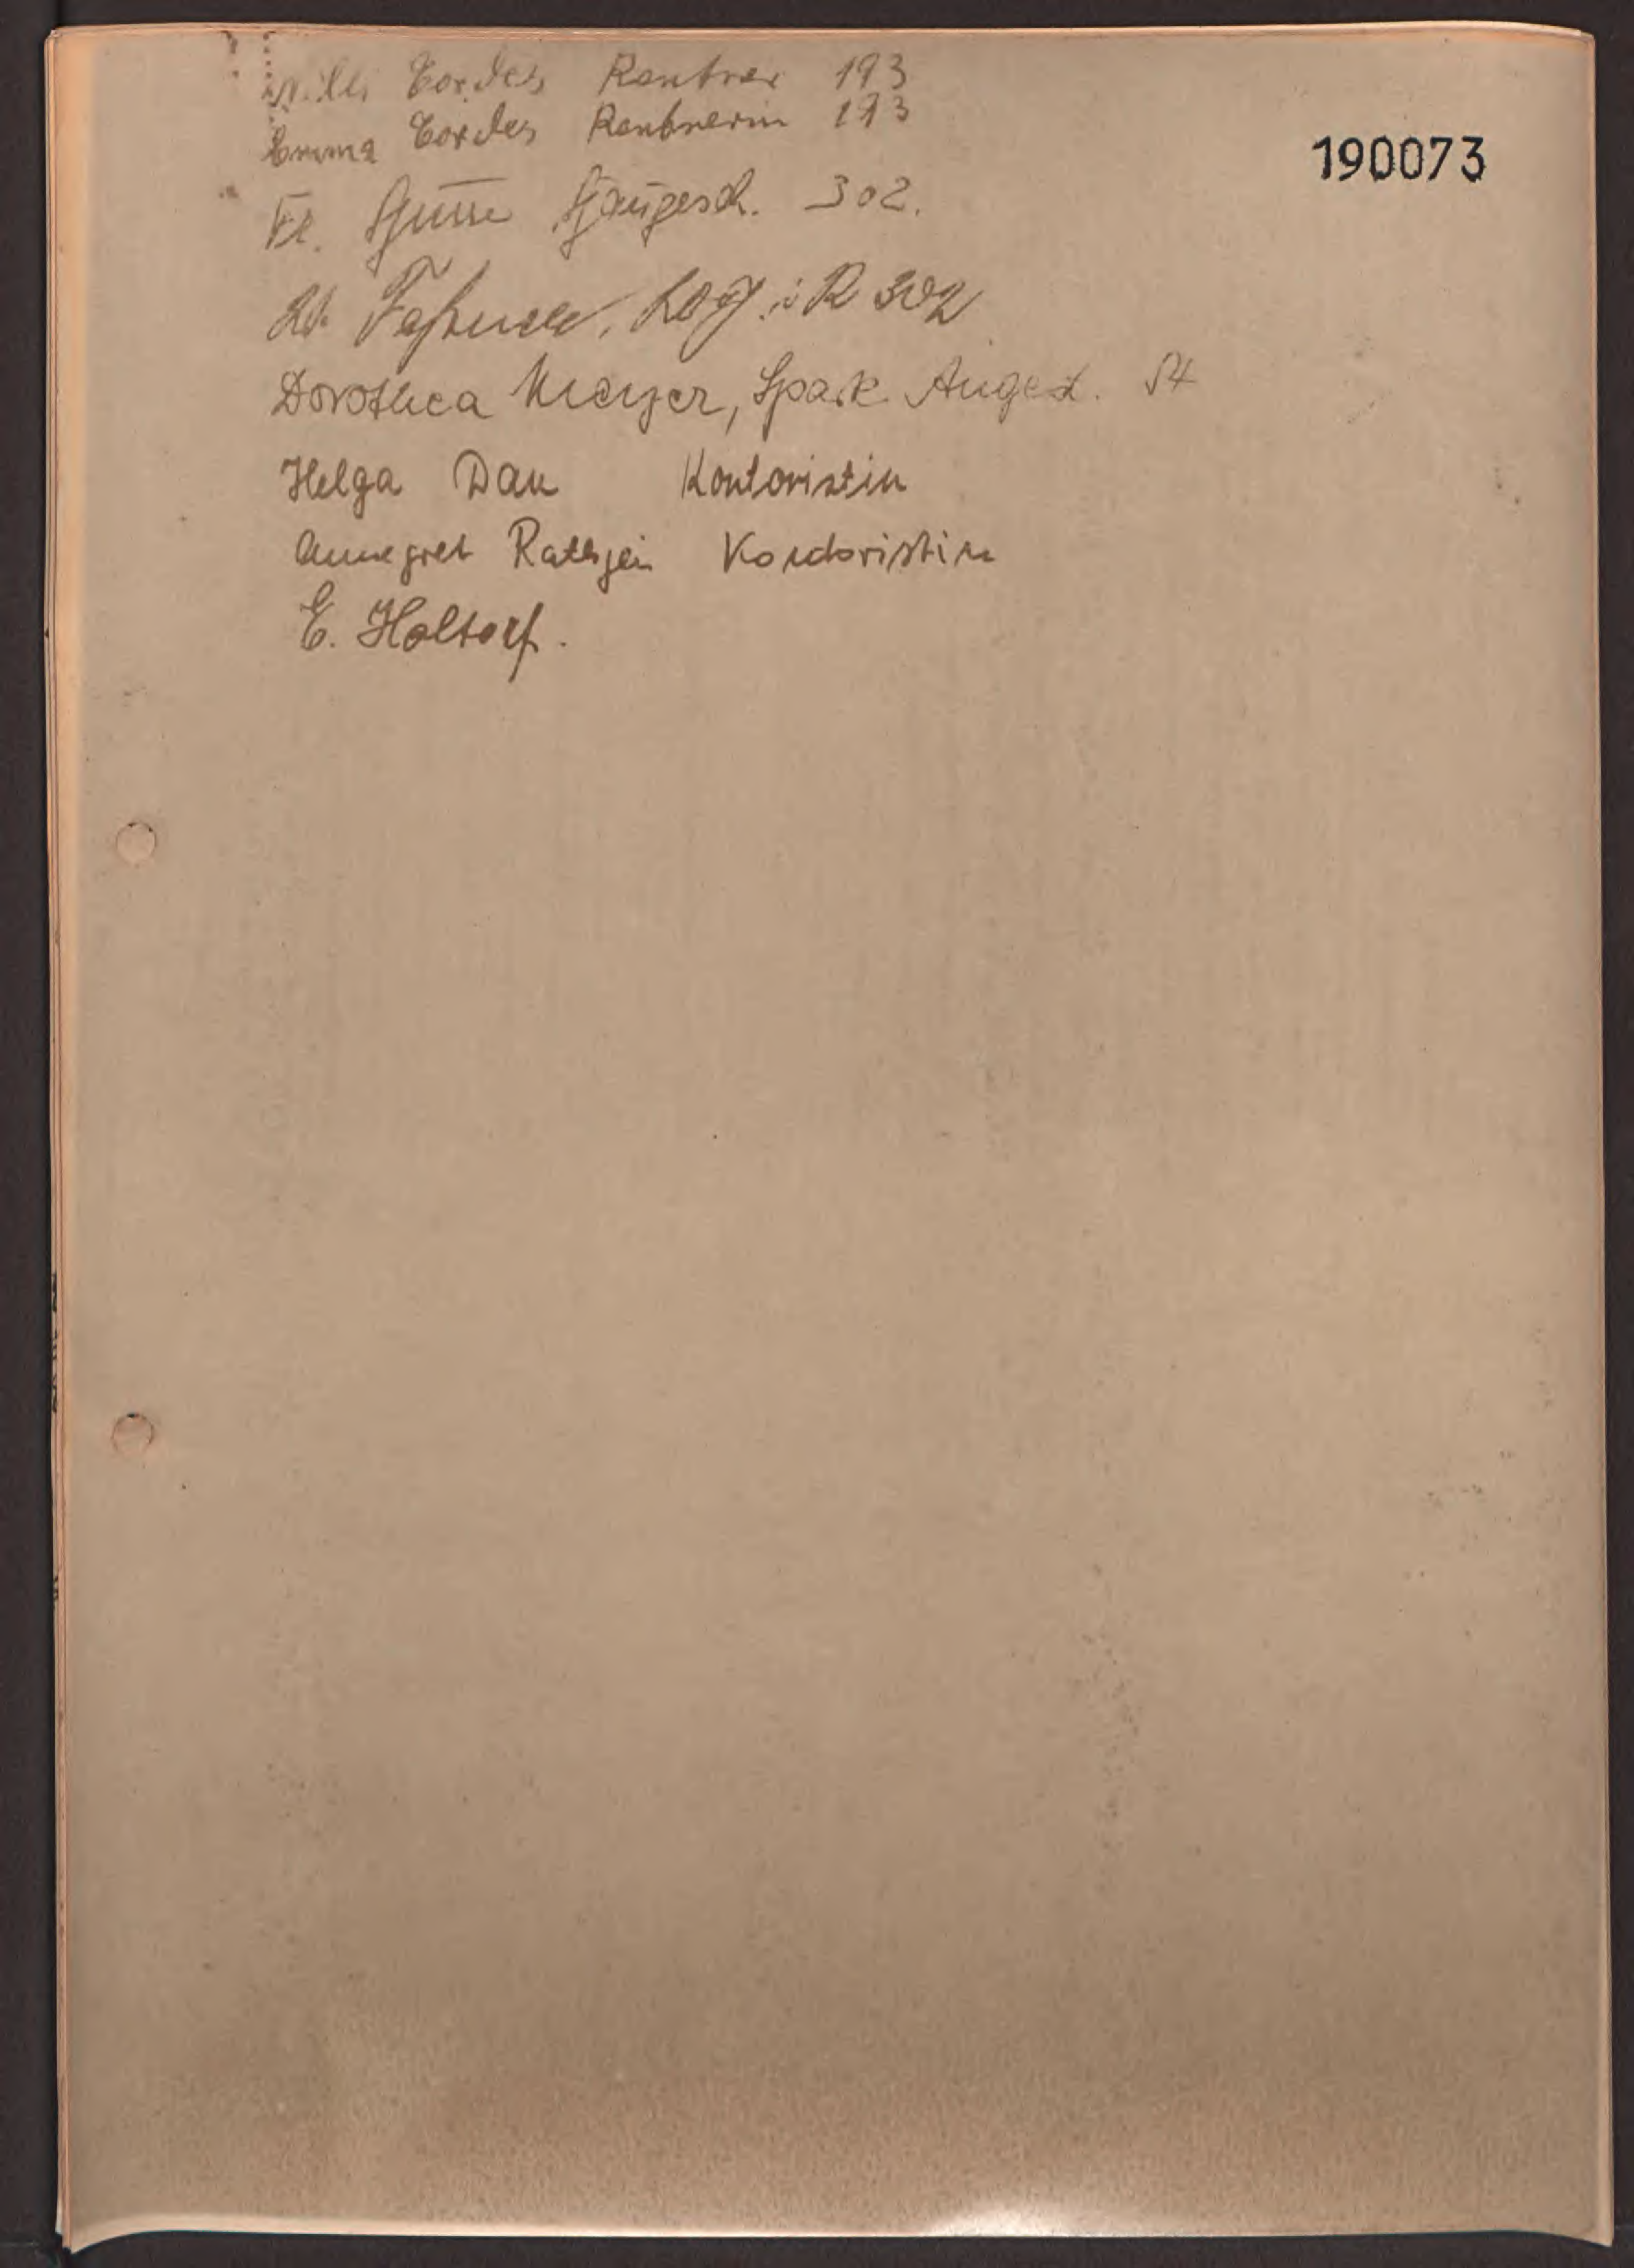 Willi Cordes Rentner 193
190073
Emma Cordes Rentnerin 193
Fr. 302.
302
Dorothea Meyer, Spark. Angest.
Helga Dau Kontoristin
Annegret Rathjen Kontoristin
E. Holtorf.